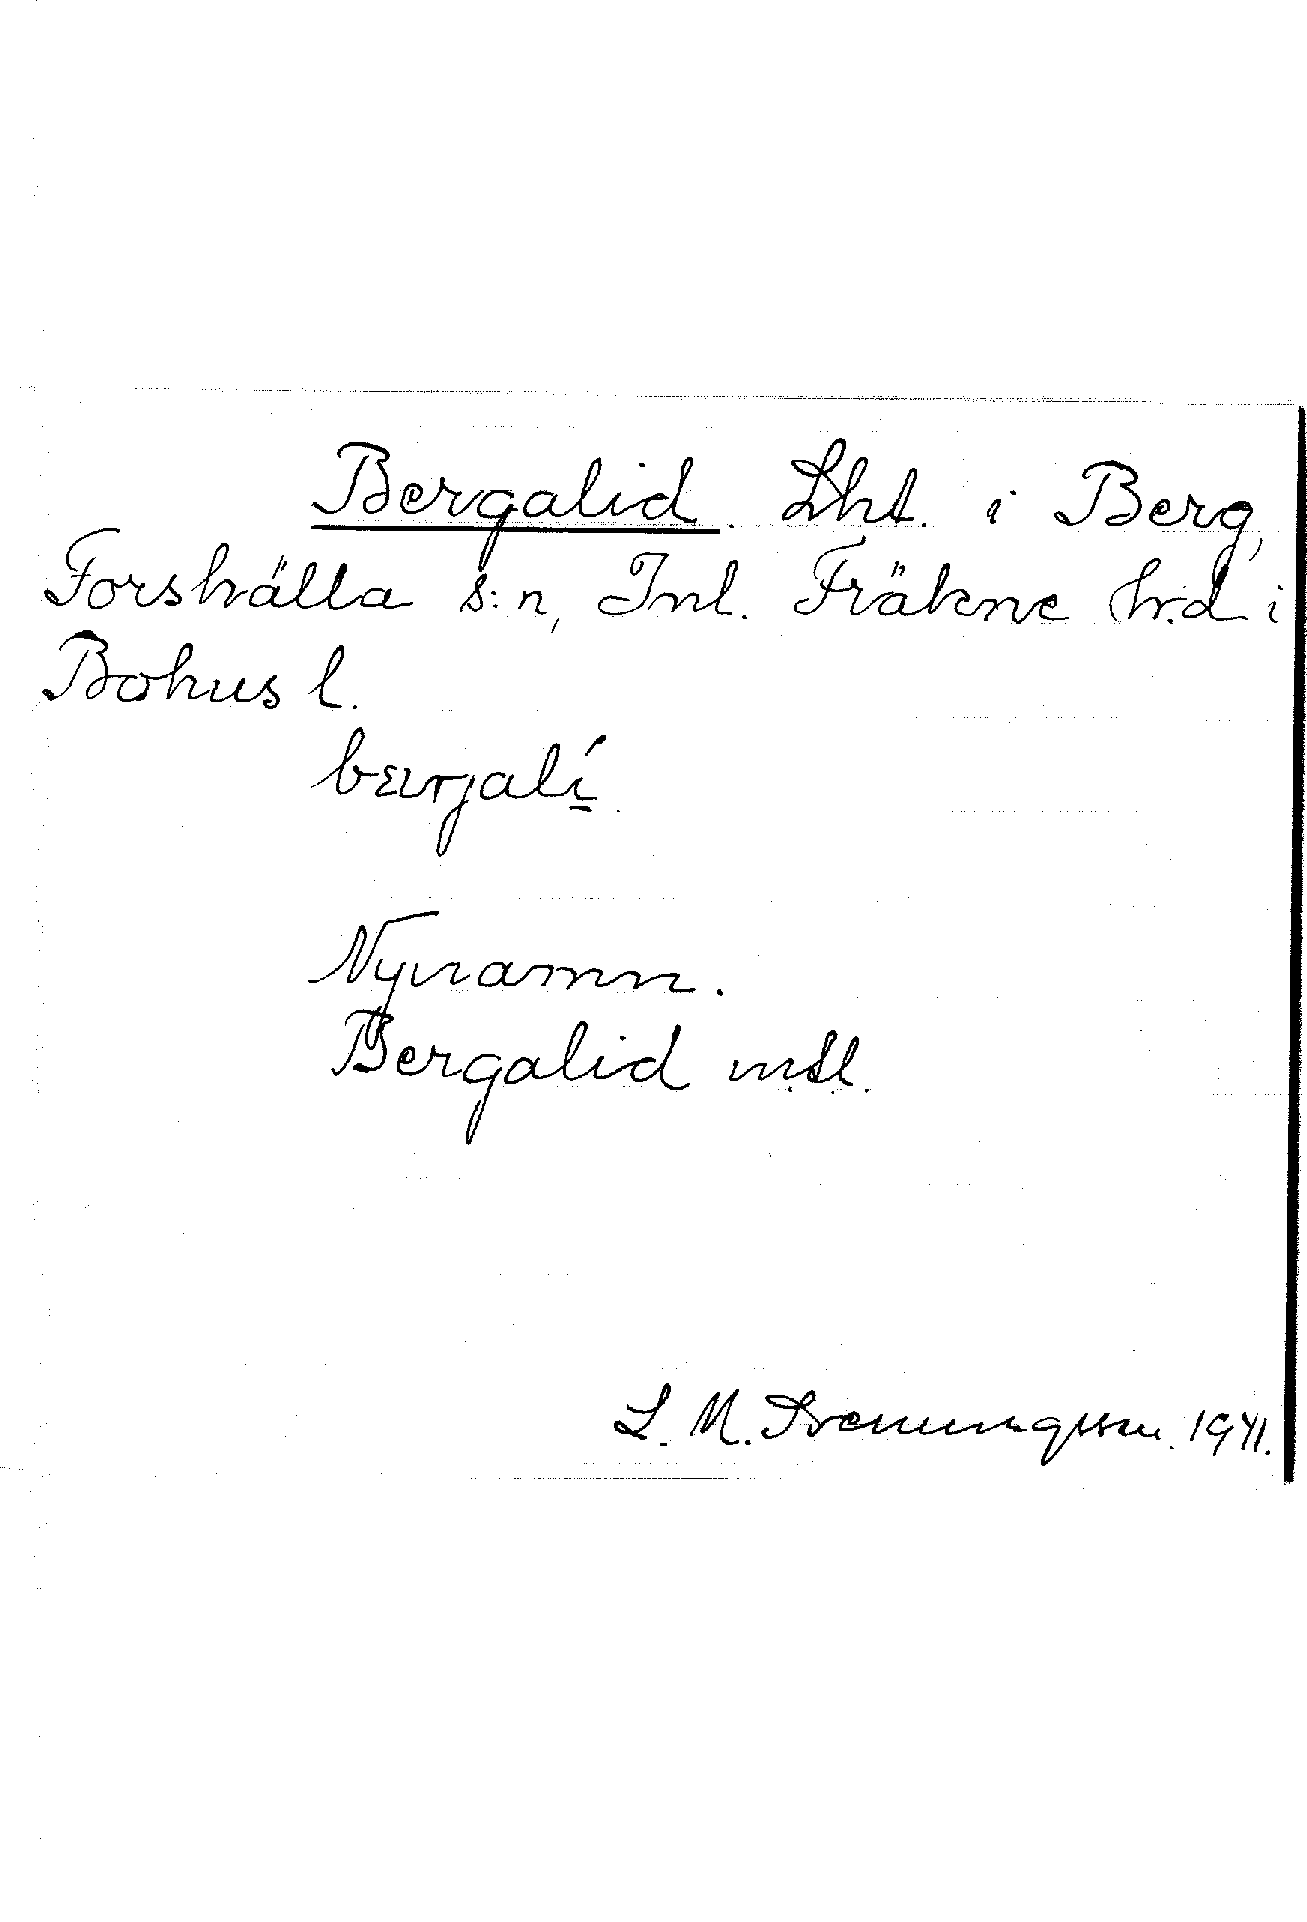 Bergalid. Lht. i Berg,
Forshälla s:n, Inl. Fräkne hrd i
Bohus l.
Nynamn.
Bergalid
L. M. Svenungsson. 1941.